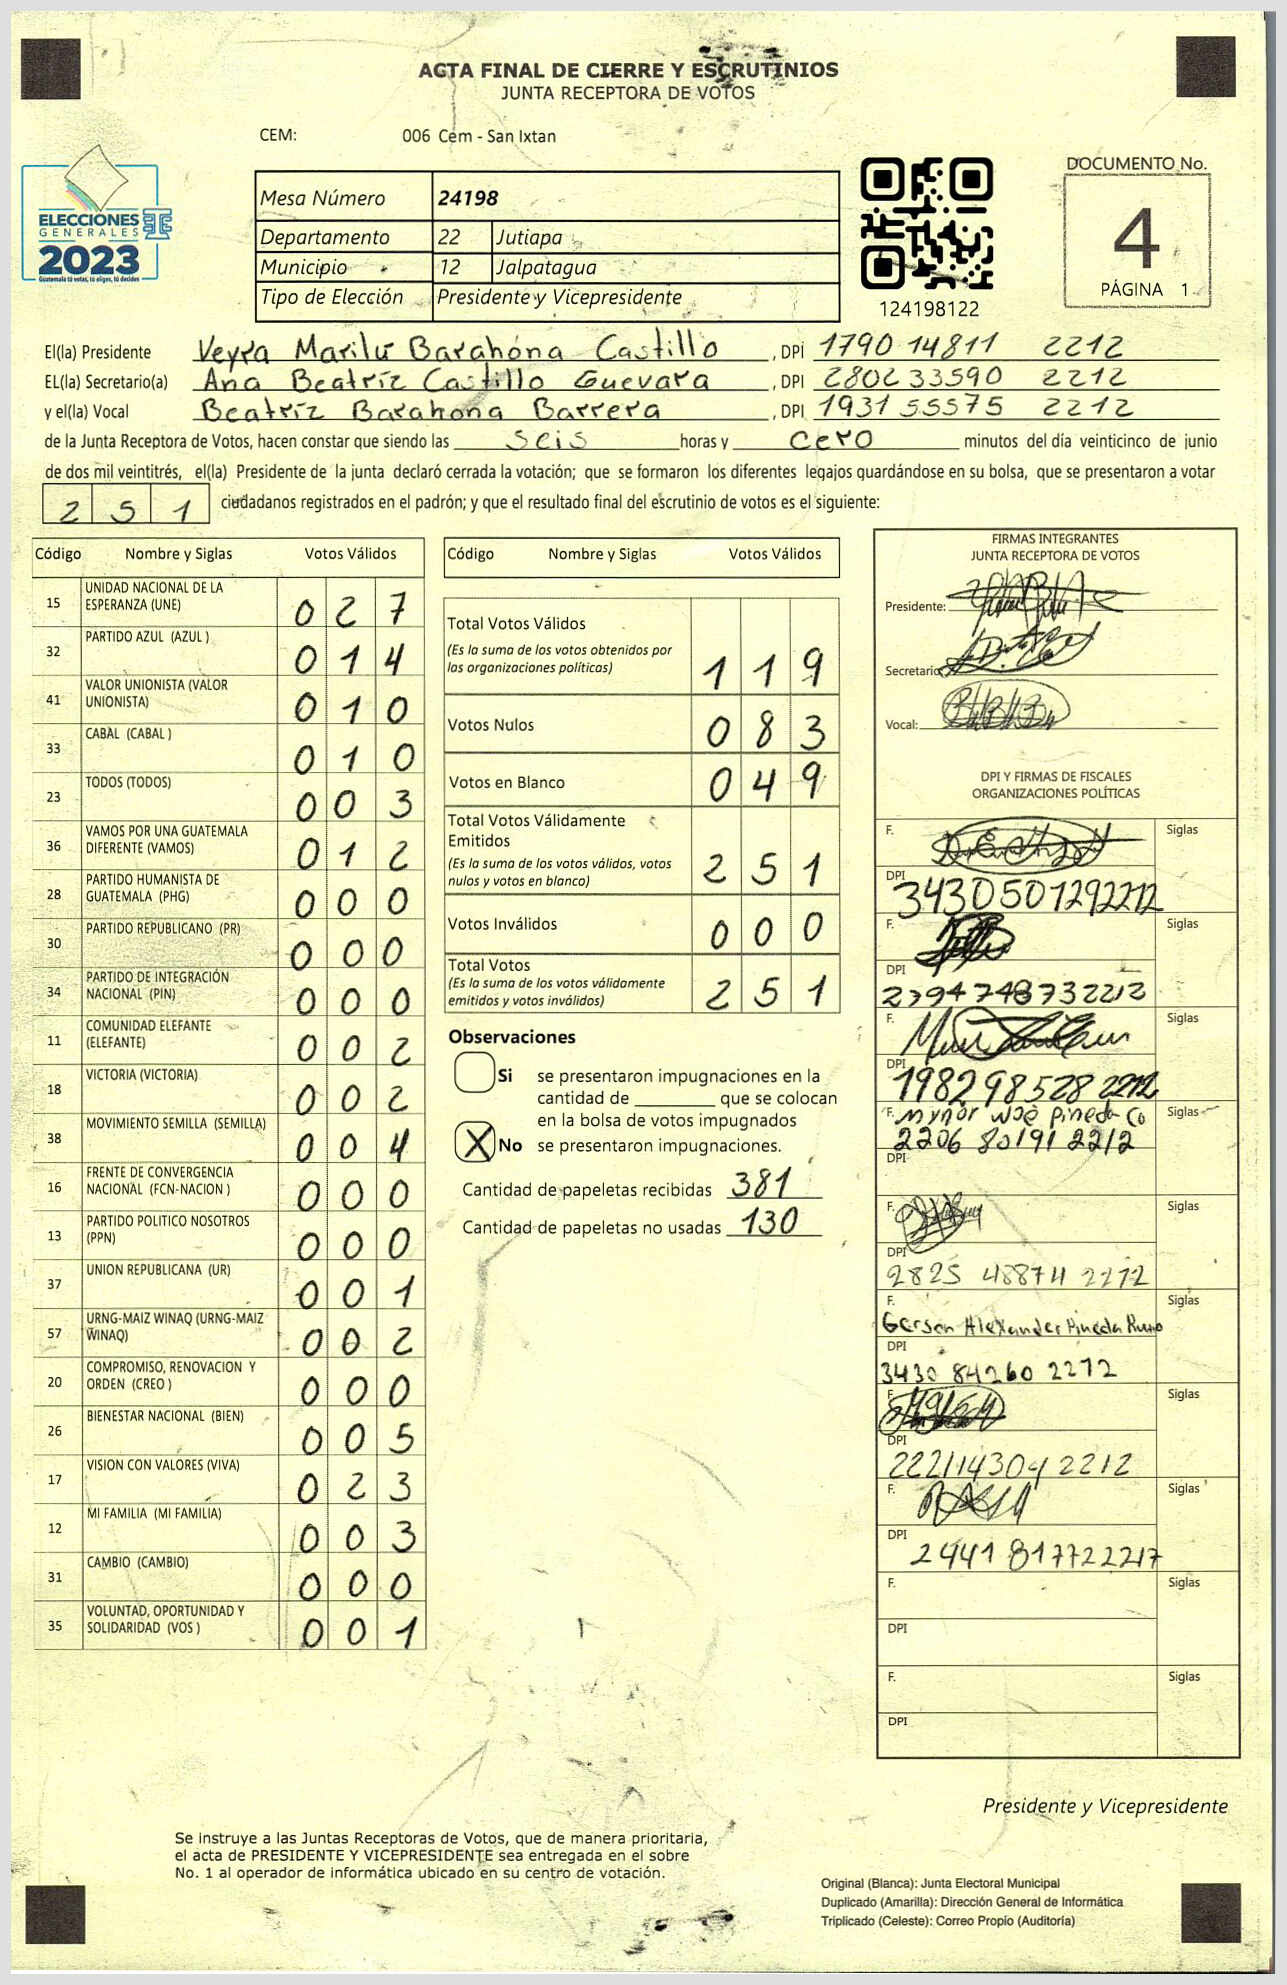 ACTA FINAL DE CIERRE Y ESCRUTINIOS
JUNTA RECEPTORA DE VOTOS
CEM: 006 Cem - San Ixtan
ELECCIONES
GENERALES
2023
Guatemala tú votas, tú eliges, tú decides
Mesa Número 24198
Departamento 22 Jutiapa
Municipio 12 Jalpatagua
Tipo de Elección Presidente y Vicepresidente
124198122
DOCUMENTO No.
4
PÁGINA 1
El(la) Presidente Veyra Marilú Barahona Castillo , DPI 1790 14811 2212
EL(la) Secretario(a) Ana Beatríz Castillo Guevara , DPI 2802 33590 2212
y el(la) Vocal Beatríz Barahona Barrera , DPI 1931 55575 2212
de la Junta Receptora de Votos, hacen constar que siendo las seis horas y cero minutos del día veinticinco de junio
de dos mil veintitrés, el(la) Presidente de la junta declaró cerrada la votación; que se formaron los diferentes legajos guardándose en su bolsa, que se presentaron a votar
2 5 1 ciudadanos registrados en el padrón; y que el resultado final del escrutinio de votos es el siguiente:
Código Nombre y Siglas Votos Válidos
15 UNIDAD NACIONAL DE LA ESPERANZA (UNE) 0 2 7
32 PARTIDO AZUL (AZUL ) 0 1 4
41 VALOR UNIONISTA (VALOR UNIONISTA) 0 1 0
33 CABAL (CABAL ) 0 1 0
23 TODOS (TODOS) 0 0 3
36 VAMOS POR UNA GUATEMALA DIFERENTE (VAMOS) 0 1 2
28 PARTIDO HUMANISTA DE GUATEMALA (PHG) 0 0 0
30 PARTIDO REPUBLICANO (PR) 0 0 0
34 PARTIDO DE INTEGRACIÓN NACIONAL (PIN) 0 0 0
11 COMUNIDAD ELEFANTE (ELEFANTE) 0 0 2
18 VICTORIA (VICTORIA) 0 0 2
38 MOVIMIENTO SEMILLA (SEMILLA) 0 0 4
16 FRENTE DE CONVERGENCIA NACIONAL (FCN-NACION ) 0 0 0
13 PARTIDO POLITICO NOSOTROS (PPN) 0 0 0
37 UNION REPUBLICANA (UR) 0 0 1
57 URNG-MAIZ WINAQ (URNG-MAIZ WINAQ) 0 0 2
20 COMPROMISO, RENOVACION Y ORDEN (CREO ) 0 0 0
26 BIENESTAR NACIONAL (BIEN) 0 0 5
17 VISION CON VALORES (VIVA) 0 2 3
12 MI FAMILIA (MI FAMILIA) 0 0 3
31 CAMBIO (CAMBIO) 0 0 0
35 VOLUNTAD, OPORTUNIDAD Y SOLIDARIDAD (VOS ) 0 0 1
Código Nombre y Siglas Votos Válidos
Total Votos Válidos
(Es la suma de los votos obtenidos por
las organizaciones políticas) 1 1 9
Votos Nulos 0 8 3
Votos en Blanco 0 4 9
Total Votos Válidamente
Emitidos
(Es la suma de los votos válidos, votos
nulos y votos en blanco) 2 5 1
Votos Inválidos 0 0 0
Total Votos
(Es la suma de los votos válidamente
emitidos y votos inválidos) 2 5 1
Observaciones
Si se presentaron impugnaciones en la
cantidad de que se colocan
en la bolsa de votos impugnados
X No se presentaron impugnaciones.
Cantidad de papeletas recibidas 381
Cantidad de papeletas no usadas 130
FIRMAS INTEGRANTES
JUNTA RECEPTORA DE VOTOS
Presidente:
Secretario
Vocal:
DPI Y FIRMAS DE FISCALES
ORGANIZACIONES POLÍTICAS
F. Siglas
DPI
3430501292212
F. Siglas
DPI
F. Siglas
DPI
1982 98528 2212
F. Mynor Pineda Siglas
2206 80191 2212
DPI
F. Siglas
DPI
2825 48874 2212
F. Siglas
Gerson Alexander Pineda
DPI
3430 84260 2212
F. Siglas
DPI
F. Siglas
DPI
F. Siglas
DPI
F. Siglas
DPI
Presidente y Vicepresidente
Se instruye a las Juntas Receptoras de Votos, que de manera prioritaria,
el acta de PRESIDENTE Y VICEPRESIDENTE sea entregada en el sobre
No. 1 al operador de informática ubicado en su centro de votación.
Original (Blanca): Junta Electoral Municipal
Duplicado (Amarilla): Dirección General de Informática
Triplicado (Celeste): Correo Propio (Auditoría)